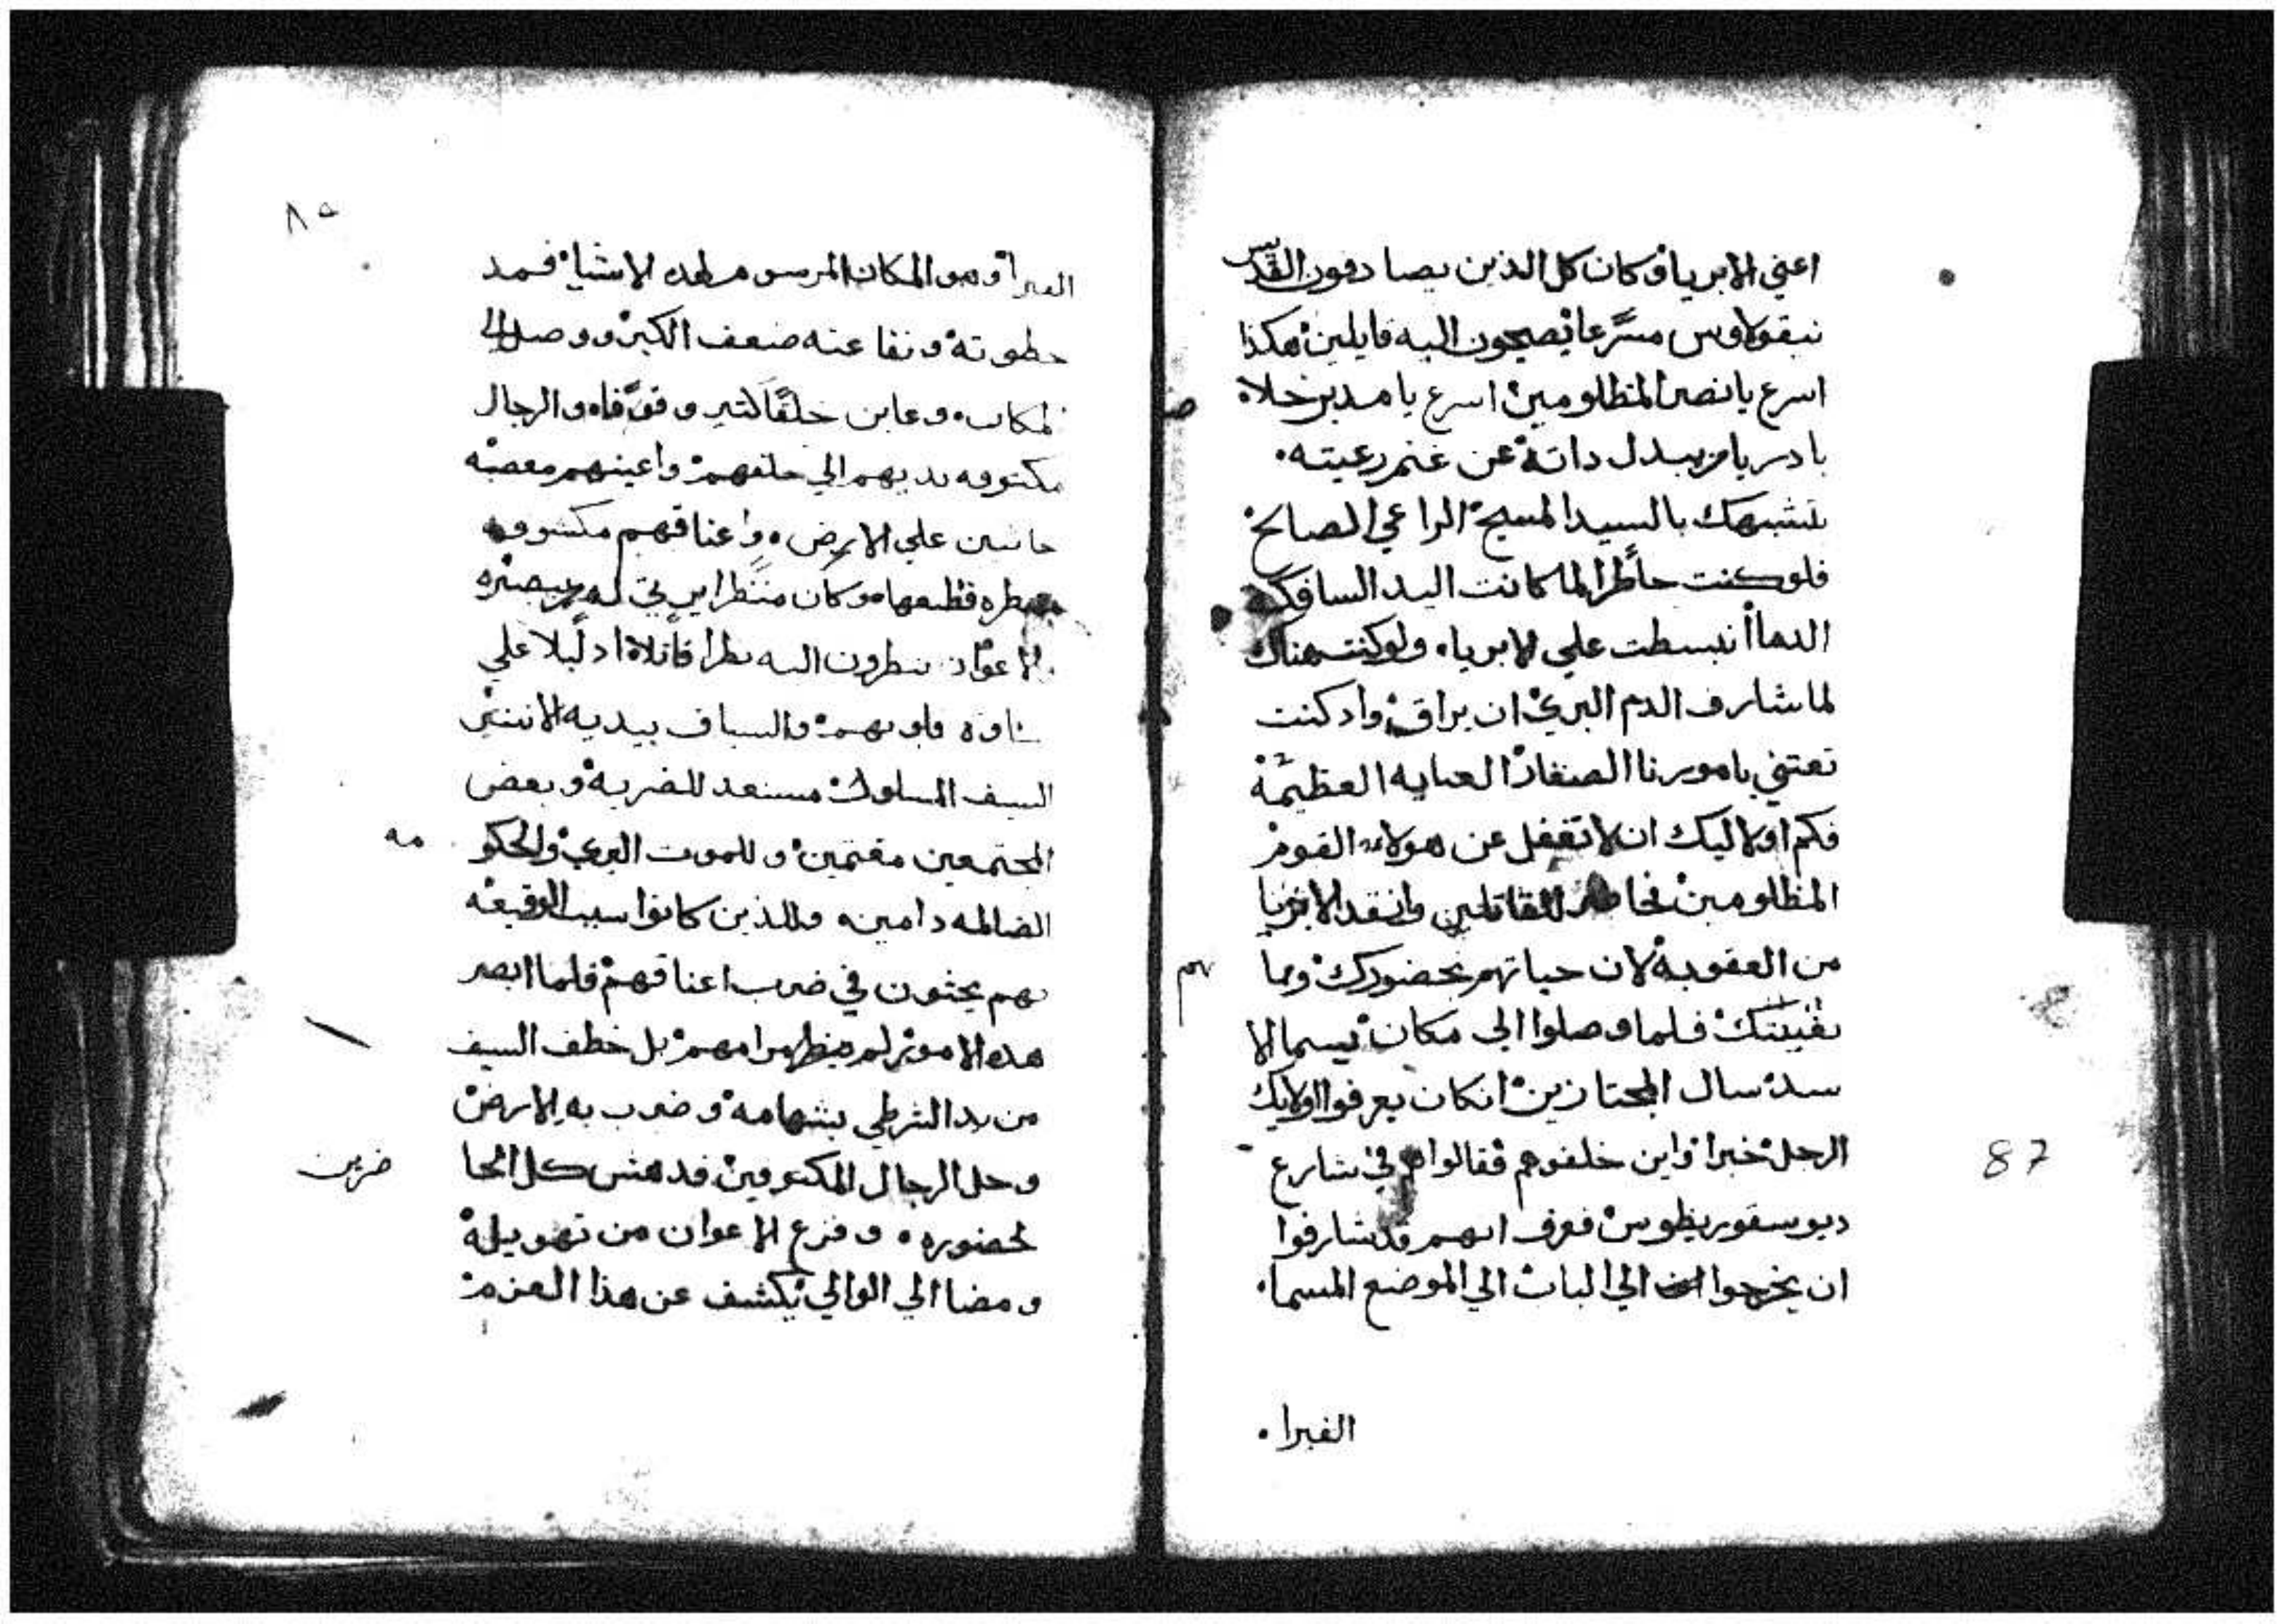 اعني الابريا وكان كل الذين يصادفون القديس
نيقولاوس مسرعا يصيحون اليه قايلين هكذا
اسرع يا نصر المظلومين اسرع يا مدبر خلاص
بادر يا من يبدل داته عن غنم رعيته
بتشبهك بالسيد المسيح الراعي الصالح
فلو كنت حاظرا لما كانت اليد السافكه
الدما انبسطت علي الابريا ولو كنت هناك
لما شارف الدم البري ان يراق واد كنت
تعتني بامورنا الصغار العنايه العظيمة
فكم اولا ليك ان لا تغفل عن هولاء القوم
المظلومين للقاتلين وانقد الابريا
من العقوبة لان حياتهم بحضورك وبما
نهم
بقيتك فلما وصلوا الي مكان يسما الا
سد سال المجتازين انكان يعرفوا اولايك
الرجل خبرا واين خلفوهم فقالوا هم في شارع
ديوسقوريطوس فعرف انهم قد شارفوا
ان يخرجوا الي الباب الي الموضع المسما
87
الفبرا
٨٥
الفبرا وهو المكان المرسوم لهده الاشيا فمد
خطوته ونفا عنه ضعف الكبر ووصل الي
المكان وعاين خلقا كثير وقوفا والرجال
مكتوفه يديهم الي خلفهم واعينهم معصبه
جاثيين علي الارض واعناقهم مكشوفه
قطعها وكان منتظرا
الاعوان ينظرون اليه نظرا قاتلا دليلا علي
قلوبهم والسياف بيديه الاثنتين
السيف المسلول مستعد للضربة وبعض
المجتمعين مغتمين وللموت البري والحكو
مه
الضالمه دامينه وللذين كانوا سبب الوقيعه
بهم يحثون في ضرب اعناقهم فلما ابصر
هده الامور لم بل خطف السيف
من يد الشرطي بشهامه وضرب به الارض
وحل الرجال المكتوفين فدهش كل الحا
ضرين
لحضوره وفزع الاعوان من تهويله
ومضا الي الوالي يكشف عن هذا العزم